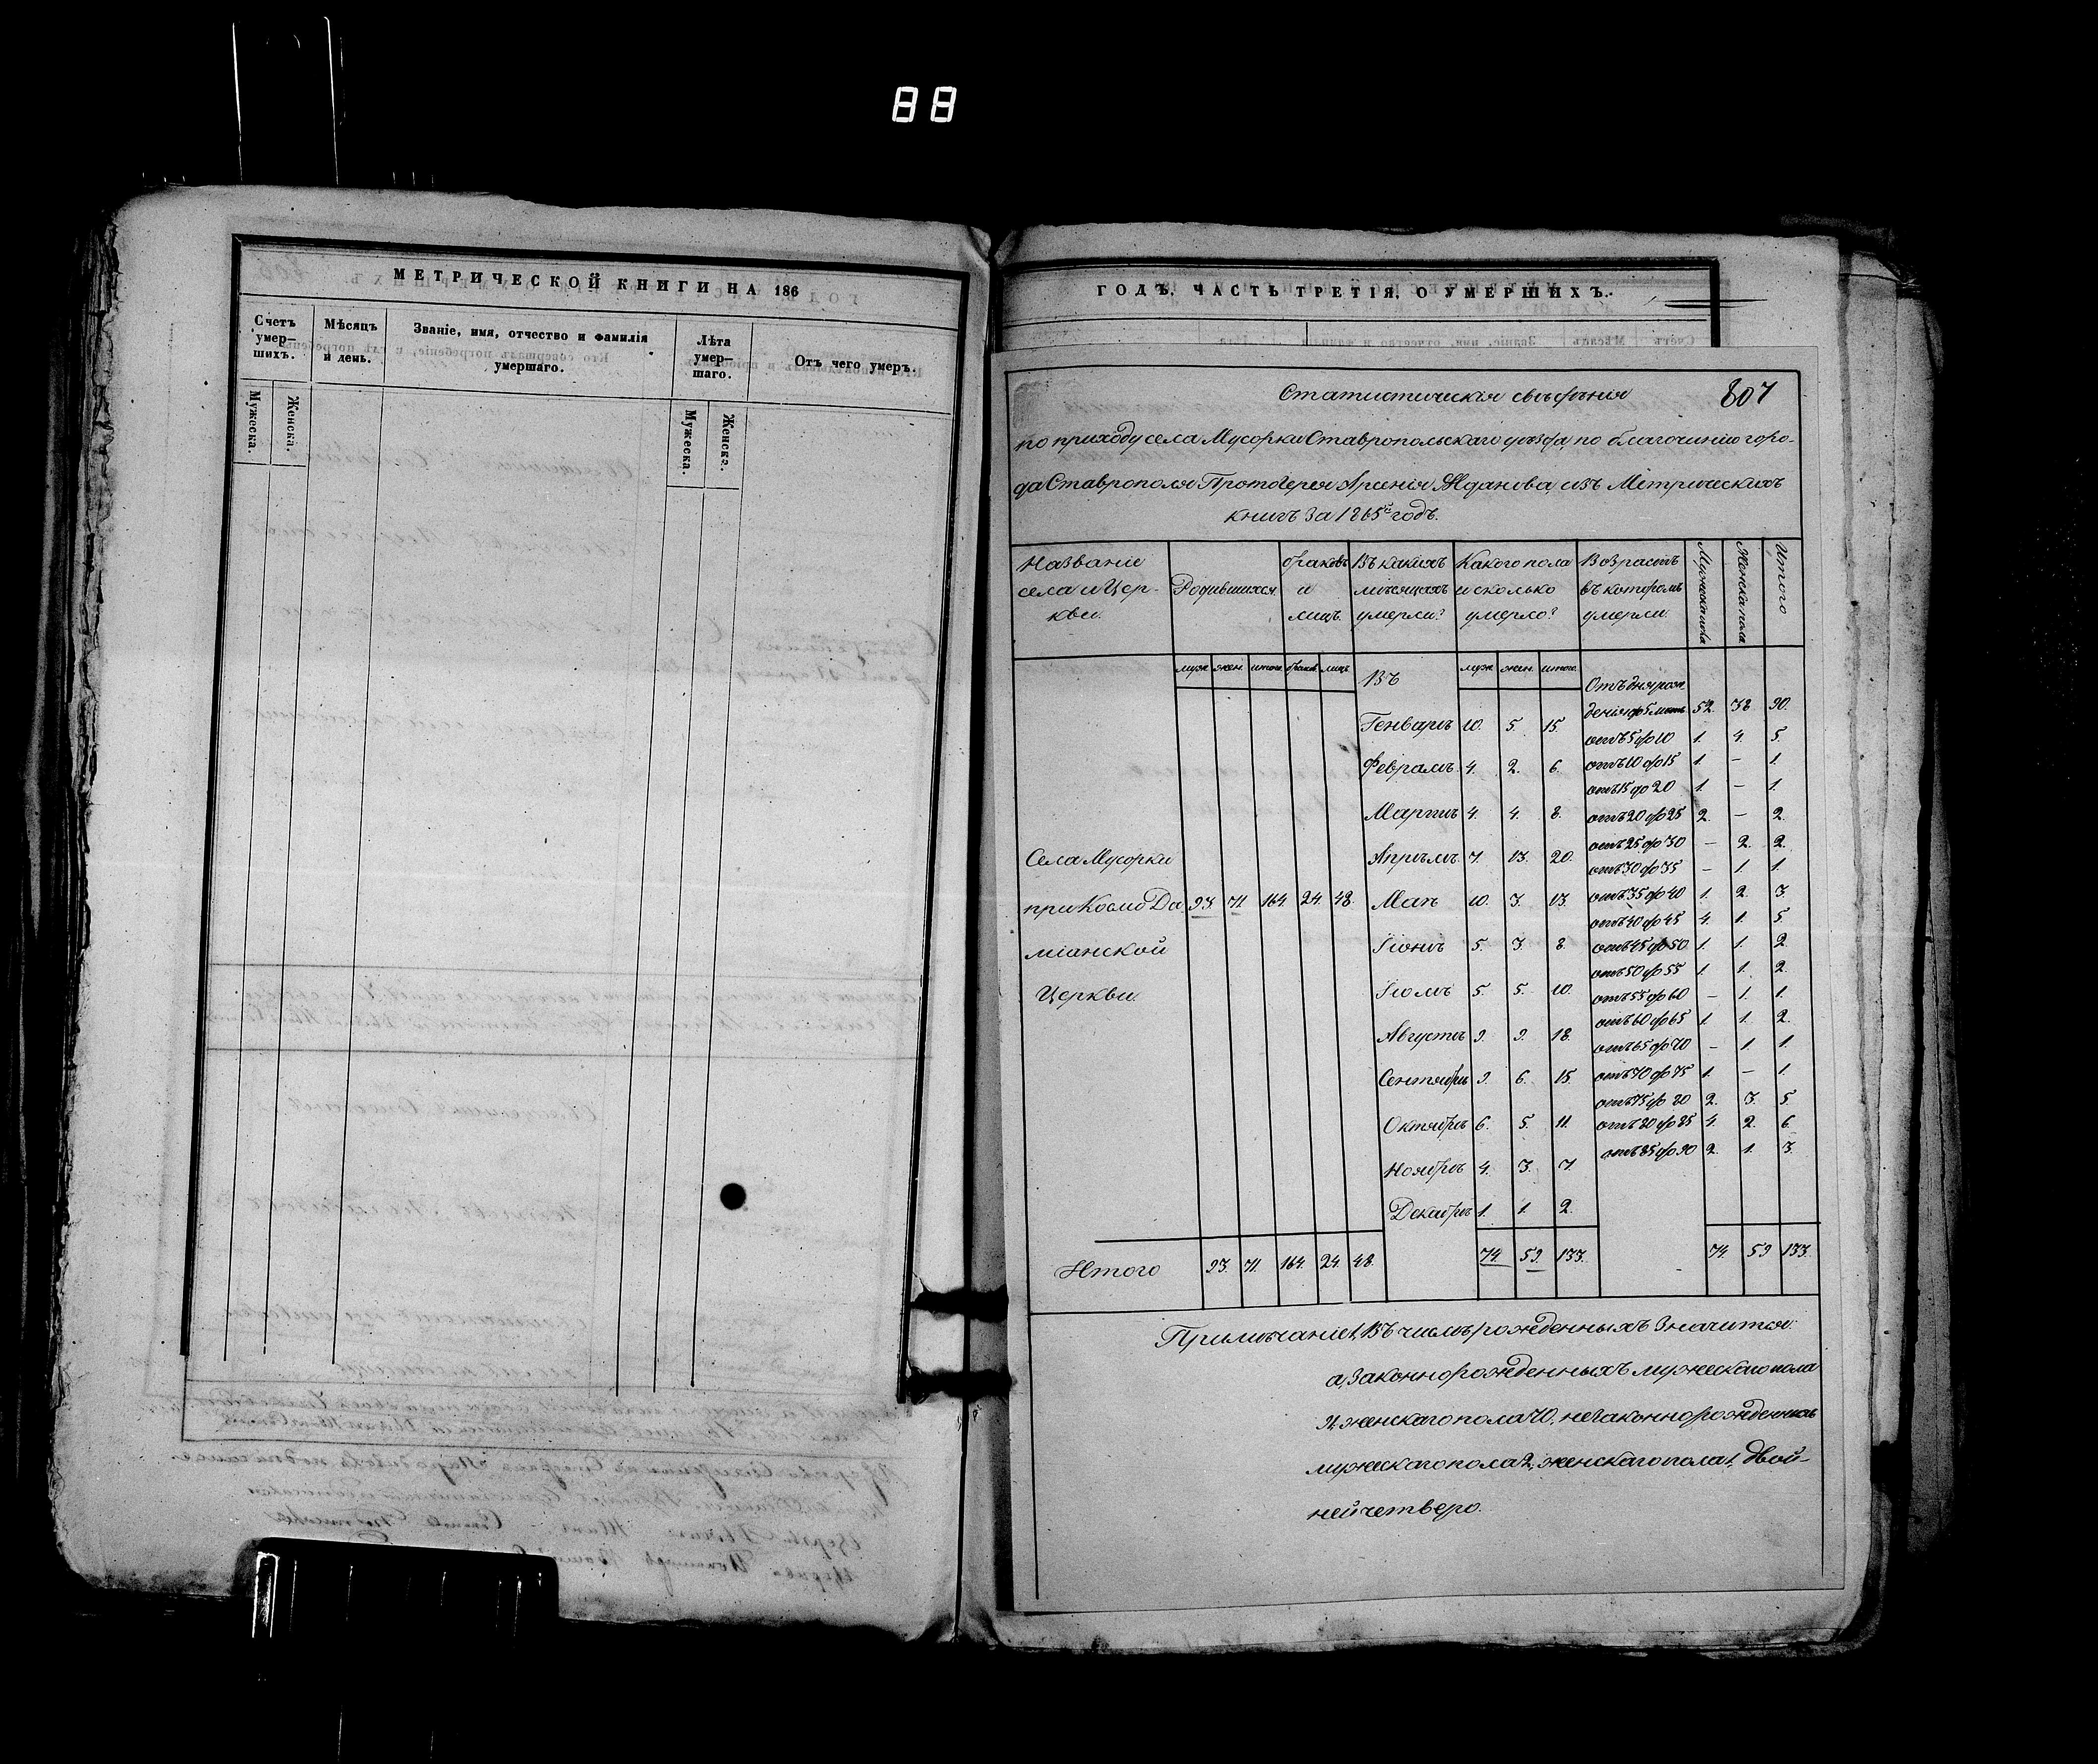 88
МЕТРИЧЕСКОЙ КНИГИ НА 186
Счетъ умер-шихъ.
Мѣсяцъ и день.
Званіе, имя, отчество и фамилія умершаго.
Лѣта умер-шаго.
Отъ чего умеръ.
Мужеска.
Женска.
Мужеска.
Женска.
ГОДЪ, ЧАСТЬ ТРЕТІЯ, О УМЕРШИХЪ.
Статистическія свѣдѣнія
807
по приходу села Мусорки Ставропольскаго уѣзда, по благочинію горо-
да Ставрополя Протоіерея Арсенія Жданова, изъ Метрическихъ
книгъ за 1865й годъ.
Названіе села и Цер-кви.
Родившихся
браковъ и лицъ.
Въ какихъ мѣсяцахъ умерли?
Какого пола и сколько умерло?
Возрастъ въ которомъ умерли.
Мужеска пола
Женска пола
Итого
муж. жен. итого. браков. лицъ.
Въ
муж. жен. итого.
Отъ дня рож-
денія до 5 лѣтъ 52. 38. 90.
Генварѣ 10. 5. 15.
отъ 5 до 10 1. 4. 5.
Февралѣ 4. 2. 6.
отъ 10 до 15 1. – 1.
отъ 15 до 20 1. – 1.
Мартѣ 4. 4. 8.
отъ 20 до 25 2. – 2.
отъ 25 до 30 – 2. 2.
Апрѣлѣ 7. 13. 20.
отъ 30 до 35 – 1. 1.
Села Мусорки
при Космо Да
міанской
Церкви.
93. 71. 164. 24. 48.
Маѣ 10. 3. 13.
отъ 35 до 40 1. 2. 3.
отъ 40 до 45 4. 1. 5.
Іюнѣ 5. 3. 8.
отъ 45 до 50 1. 1. 2.
отъ 50 до 55 1. 1. 2.
Іюлѣ 5. 5. 10.
отъ 55 до 60 – 1. 1.
отъ 60 до 65 1. 1. 2.
Августѣ 9. 9. 18.
отъ 65 до 70 – 1. 1.
Сентябрѣ 9. 6. 15.
отъ 70 до 75 1. – 1.
отъ 75 до 80 2. 3. 5.
Октябрѣ 6. 5. 11.
отъ 80 до 85 4. 2. 6.
Ноябрѣ 4. 3. 7.
отъ 85 до 90 2. 1. 3.
Декабрѣ 1. 1. 2.
Итого 93. 71. 164. 24. 48. 74. 59. 133. 74. 59 133.
Примѣчаніе 1, Въ числѣ рожденныхъ значится:
а, законнорожденныхъ мужескаго пола
91, женскаго пола 70, незаконнорожденныхъ
мужескаго пола 2, женскаго пола 1, двой-
ней четверо.